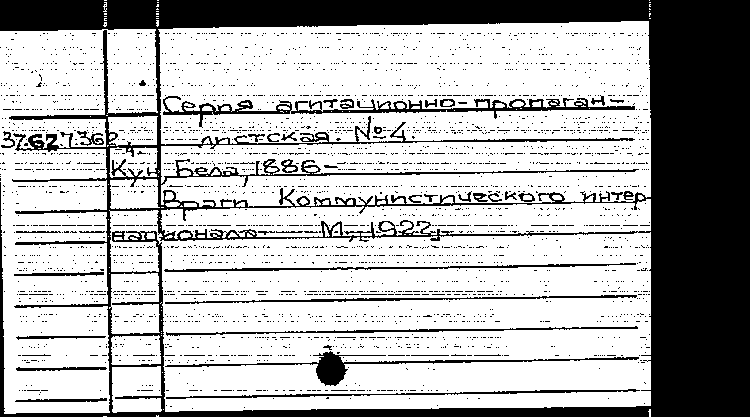 Серия агитационно-пропаган-
37.627362 листская. № 4.
Кун, Бела, 1886-
Враги Коммунистического интер-
национала. М., [1922].